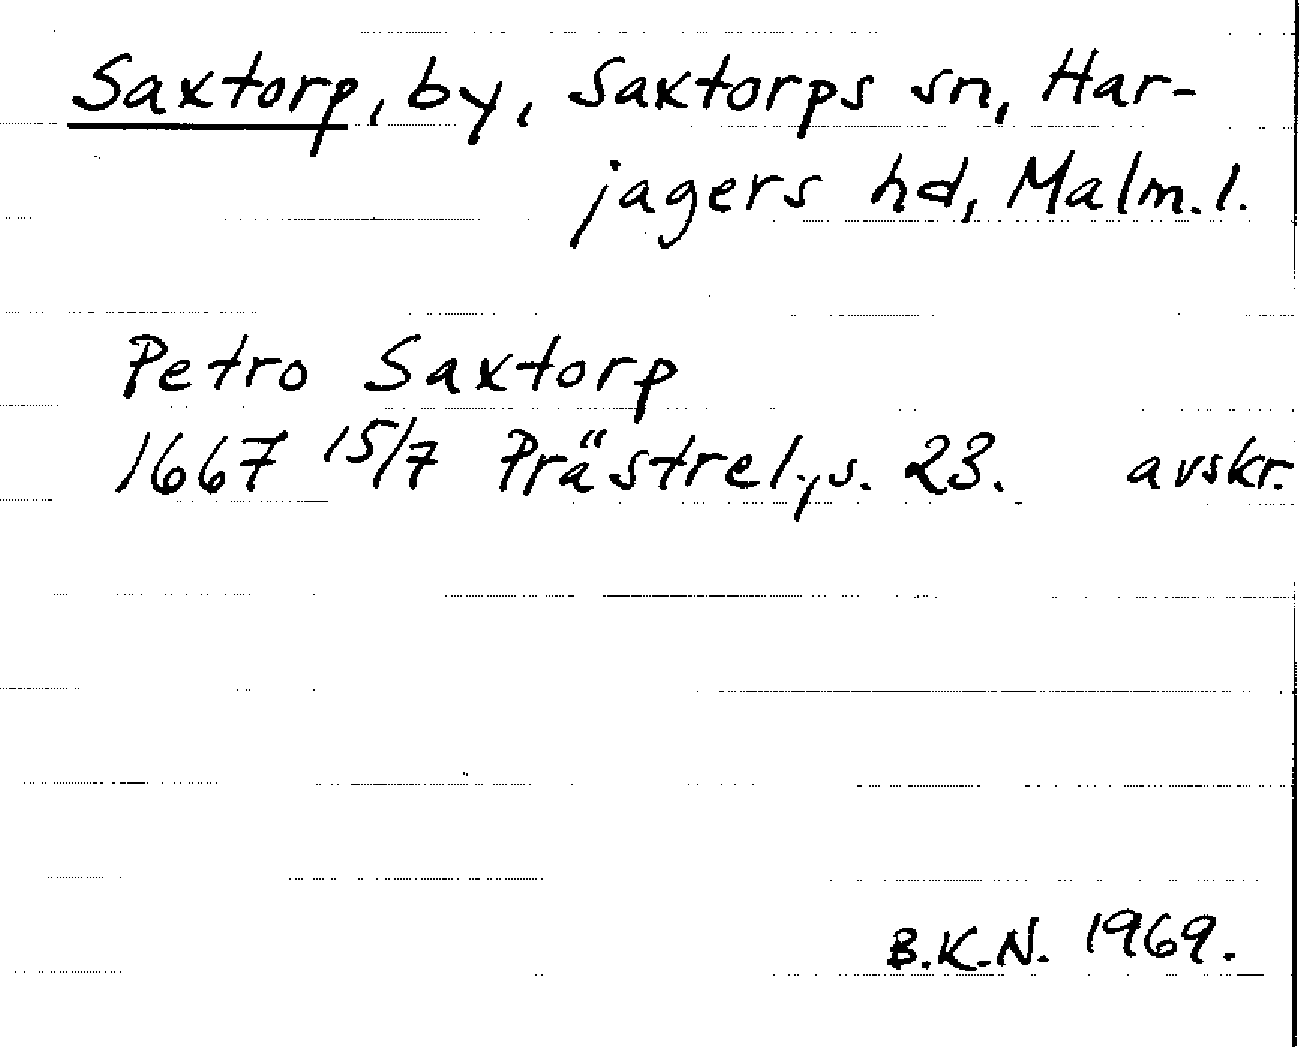 Saxtorp, by, Saxtorps sn, Har-
jagers hd, Malm. l.
Petro Saxtorp
1667 15/7 Prästrel., s. 23. avskr.
B.K.N. 1969.